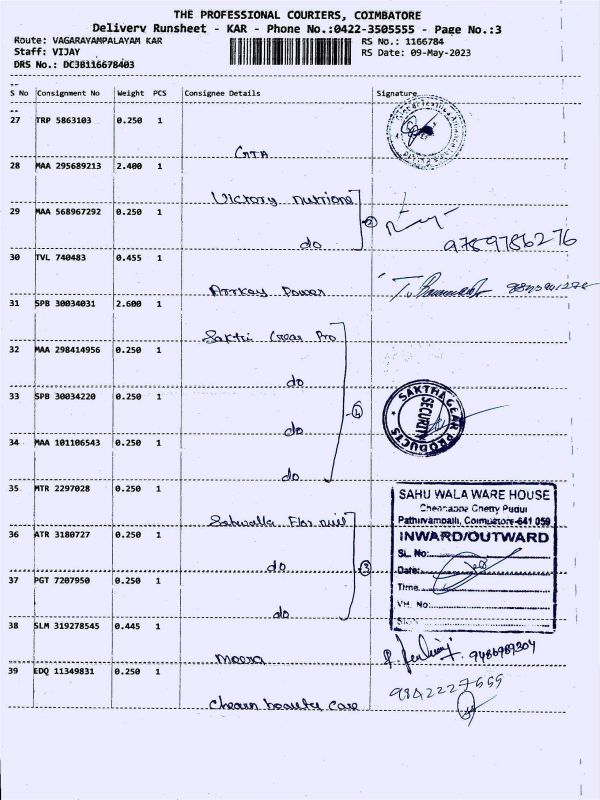 THE PROFESSIONAL COURIERS, COIMBATORE
Delivery Runsheet - KAR - Phone No.:0422-3505555 - Page No.:3
Route: VAGARAYAMPALAYAM KAR RS No.: 1166784
Staff: VIJAY RS Date: 09-May-2023
DRS No.: DC3B116678403
S No Consignment No Weight PCS Consignee Details Signature
27 TRP 5863103 0.250 1
GTA
28 MAA 295689213 2.400 1
Victory nutrions
29 MAA 568967292 0.250 1
do 2
9789786276
30 TVL 740483 0.455 1
Arrkay Power
31 SPB 30034031 2.600 1
Sakthi Gear Pro
32 MAA 298414956 0.250 1
do
33 SPB 30034220 0.250 1
do 4
SAKTHI GEAR PRODUCTS
SECURITY
34 MAA 101106543 0.250 1
do
35 MTR 2297028 0.250 1
SAHU WALA WARE HOUSE
Chennappa Chetty Pudur
Pathirvampalli, Coimbatore-641 059
36 ATR 3180727 0.250 1
do 3
INWARD/OUTWARD
SL. No:
Date:
Time
VH. No:
37 PGT 7207950 0.250 1
do
38 SLM 319278545 0.445 1
Meera
9486989304
39 EDQ 11349831 0.250 1
9842227555
beauty Care